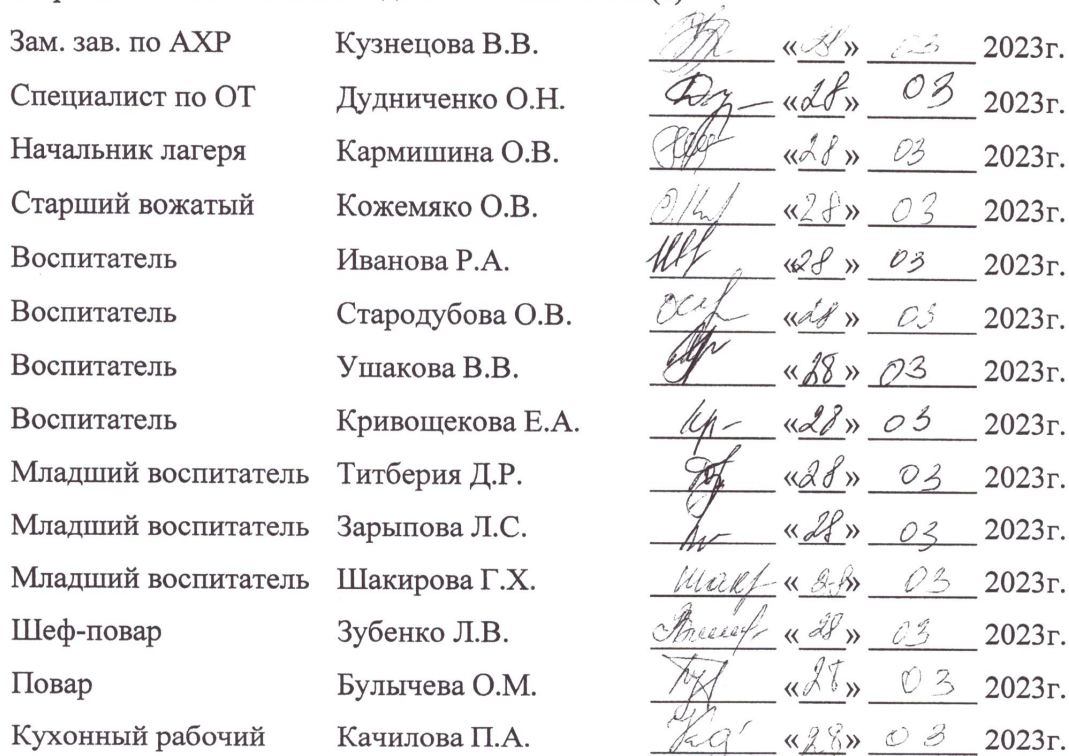 Зам. зав. по АХР Кузнецова В.В. «28» 03 2023г.
Специалист по ОТ Дудниченко О.Н. «28» 03 2023г.
Начальник лагеря Кармишина О.В. «28» 03 2023г.
Старший вожатый Кожемяко О.В. «28» 03 2023г.
Воспитатель Иванова Р.А. «28» 03 2023г.
Воспитатель Стародубова О.В. «28» 03 2023г.
Воспитатель Ушакова В.В. «28» 03 2023г.
Воспитатель Кривощекова Е.А. «28» 03 2023г.
Младший воспитатель Титберия Д.Р. «28» 03 2023г.
Младший воспитатель Зарыпова Л.С. «28» 03 2023г.
Младший воспитатель Шакирова Г.Х. «28» 03 2023г.
Шеф-повар Зубенко Л.В. «28» 03 2023г.
Повар Булычева О.М. «28» 03 2023г.
Кухонный рабочий Качилова П.А. «28» 03 2023г.